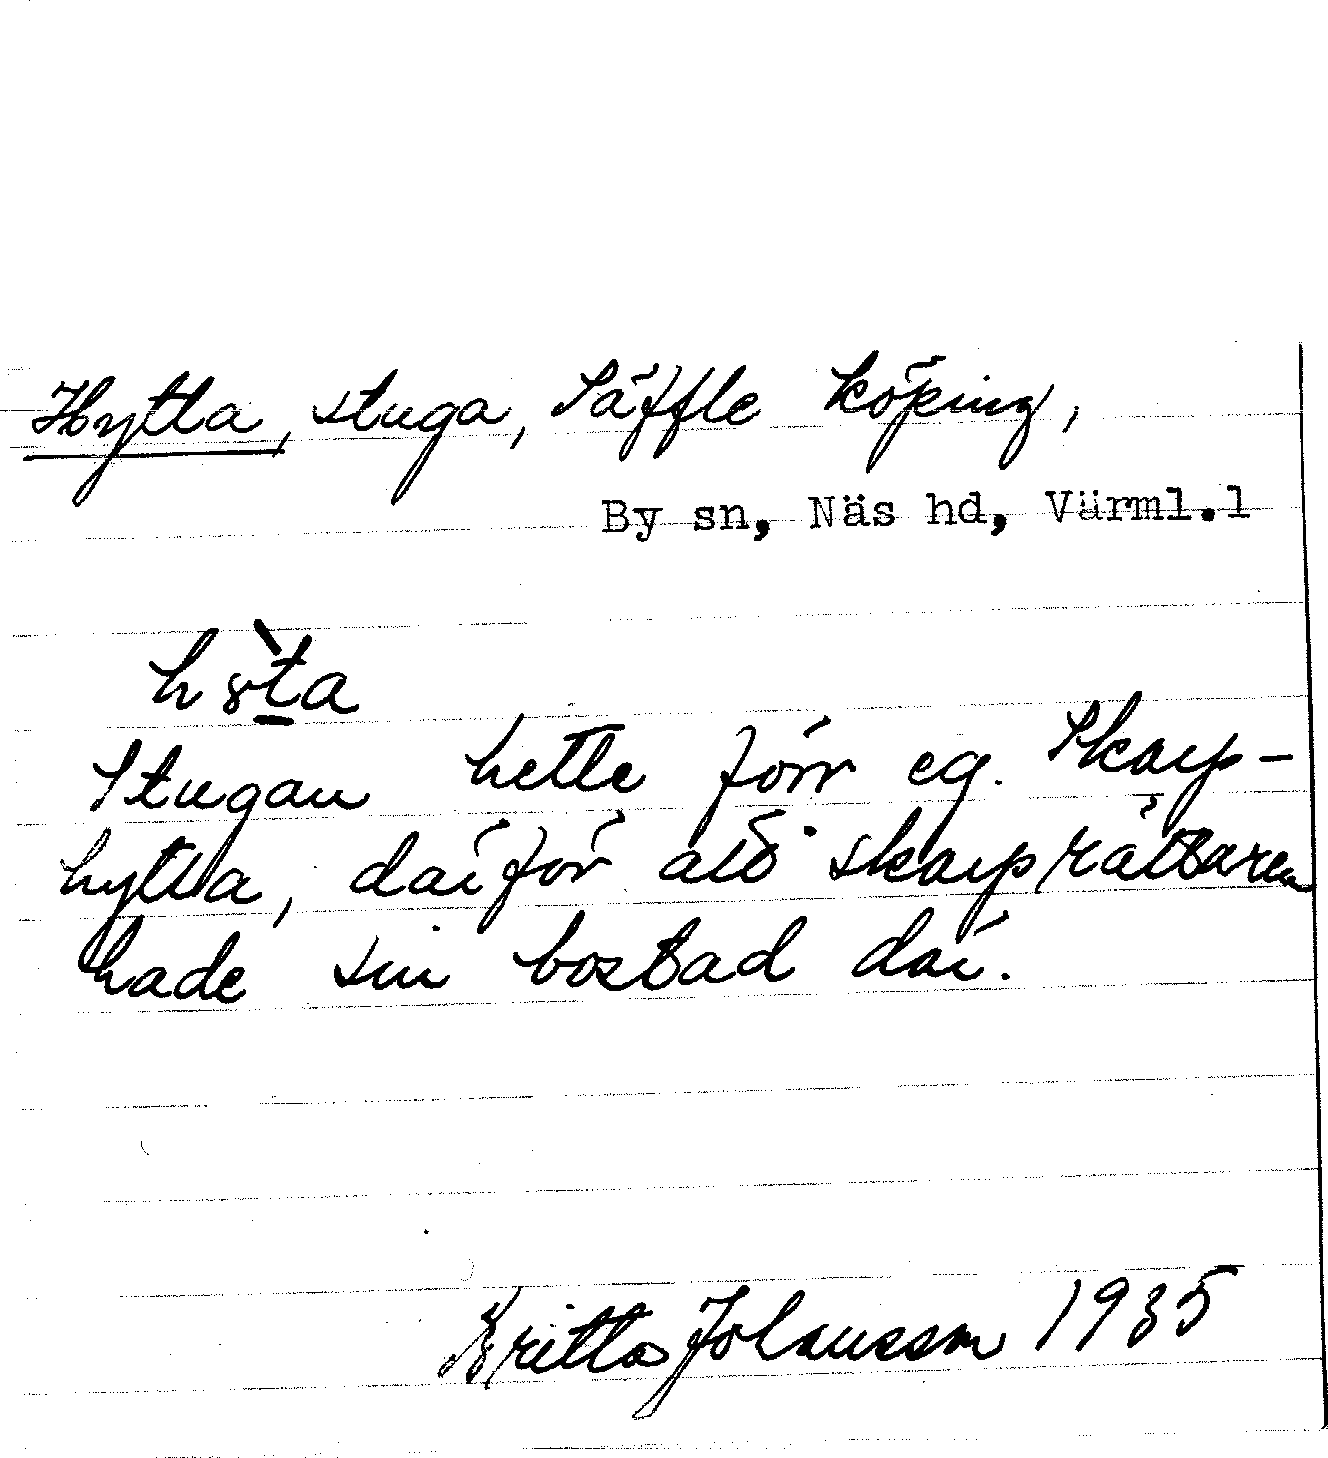 Hytta, stuga, Säffle köping,
By sn, Näs hd, Värml.l
Stugan hette förr eg. Skarp-
hytta, därför att skarprättaren
hade sin bostad där.
Britta Johansson 1935